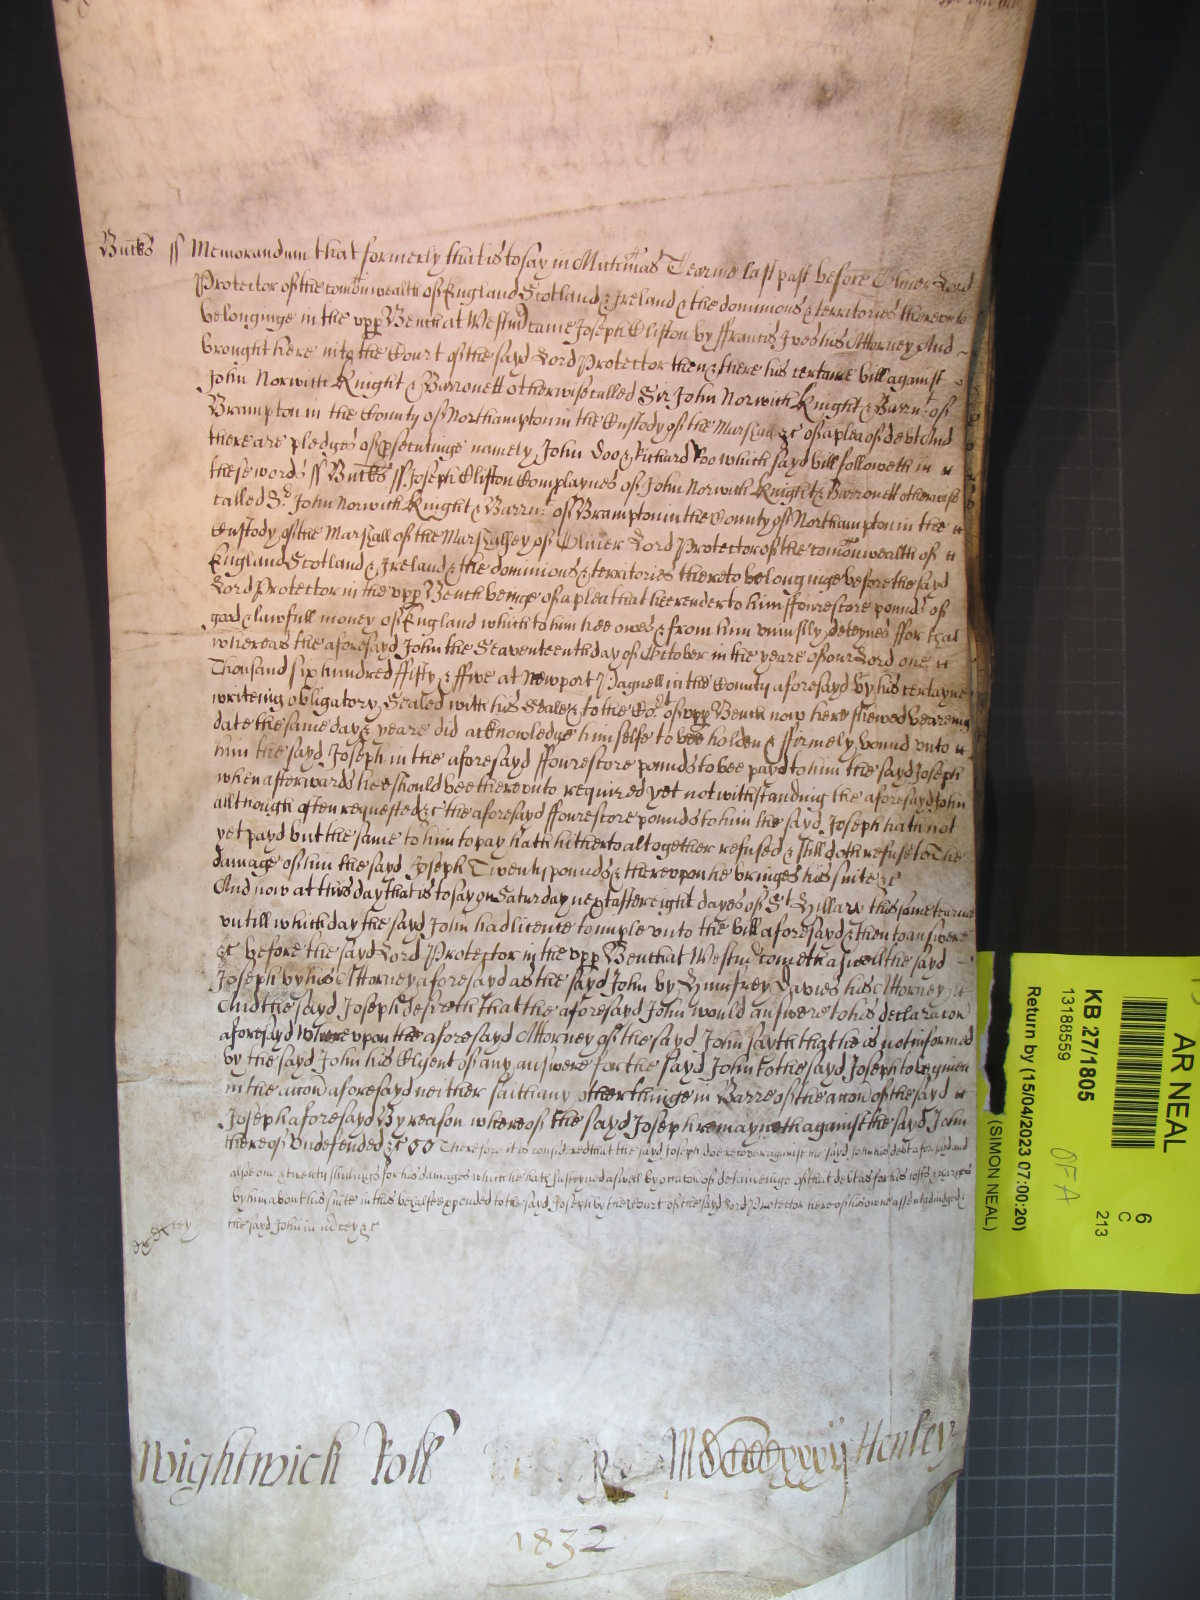 Bucks ss Memorandum that formerly that is to say in Michmas Tearme last past before Oliver Lord
Protector of the comonwealth of England Scotland & Ireland & the dominions & territories thereunto
belonginge in the upp Bench at Westm came Joseph Clifton by ffrancis Ives his Attorney And
brought here into the Court of the sayd Lord Protector then & there his certaine bill against
John Norwich Knight & Barronett otherwise called Sir John Norwich Knight & Barrnt of
Brampton in the County of Northampton in the Custody of the Marshall &c of a plea of debt And
there are pledges of psecutinge namely John Doo & Richard Roo which sayd bill followeth in
these words ss Bucks ss Joseph Clifton Complaynes of John Norwich Knight & Barronett otherwise
called Sr John Norwich Knight & Barrnt of Brampton in the County of Northampton in the
Custody of the Marshall of the Marshalsey of Oliver Lord Protector of the comonwealth of
England Scotland & Ireland & the dominions & territories thereto belonginge before the sayd
Lord Protector in the upp Bench beinge of a plea that hee render to him ffourescore pounds of
good & lawfull money of England which to him hee owes & from him uniustly deteynes ffor that
whereas the aforesayd John the Seaventeenth day of October in the yeare of our Lord one
Thousand six hundred ffifty & ffive at Newport Pagnell in the County aforesayd by his certayne
writeing obligatory Sealed with his Seale & to the Cort of upp Bench now here shewed beareing
date the same day & yeare did acknowledge himselfe to bee holden & ffirmely bound unto
him the sayd Joseph in the aforesayd ffourescore pounds to bee payd to him the sayd Joseph
when afterwards hee should bee thereunto required yet notwithstanding the aforesayd John
although often requested &c the aforesayd ffourescore pounds to him the sayd Joseph hath not
yet payd but the same to him to pay hath hitherto altogether refused & still doth refuse to The
damage of him the sayd Joseph Twenty pounds & thereupon he bringes his suite &c
And now at this day that is to say on Saturday next after eight dayes of St Hillary this same tearme
untill which day the sayd John had licence to imple unto the bill aforesayd & then to answere
&c before the sayd Lord Protector in the upp Bench at Westm cometh aswell the sayd
Joseph by his Attorney aforesayd as the sayd John by Humfrey Davies his Attorney
And the sayd Joseph desireth that the aforesayd John would answere to his declaracon
aforesayd Whereupon the aforesayd Attorney of the sayd John sayth that he is not informed
by the sayd John his Clyent of any answere for the sayd John to the sayd Joseph to be given
in the accon aforesayd neither saith any other thinge in Barre of the accon of the sayd
Joseph aforesayd By reason whereof the sayd Joseph remayneth against the sayd John
thereof Undefended &c Therefore it is considered that the sayd Joseph doe recover against the sayd John his debt aforesayd and
alsoe one & twenty shillings for his damages which he hath susteyned aswell by occasion of deteininge of that debt as for his costs & charges
by him about his suite in this behalfe expended to the sayd Joseph by the Court of the sayd Lord Protector here of his owne assent adiudged &
the sayd John in mcy &c
Wightwick Roll MDCCCCxxxij Henley
1832
AR NEAL
KB 27/1805
13188559
Return by (15/04/2023 07:00:20)
(SIMON NEAL)
6
C
213
OFA